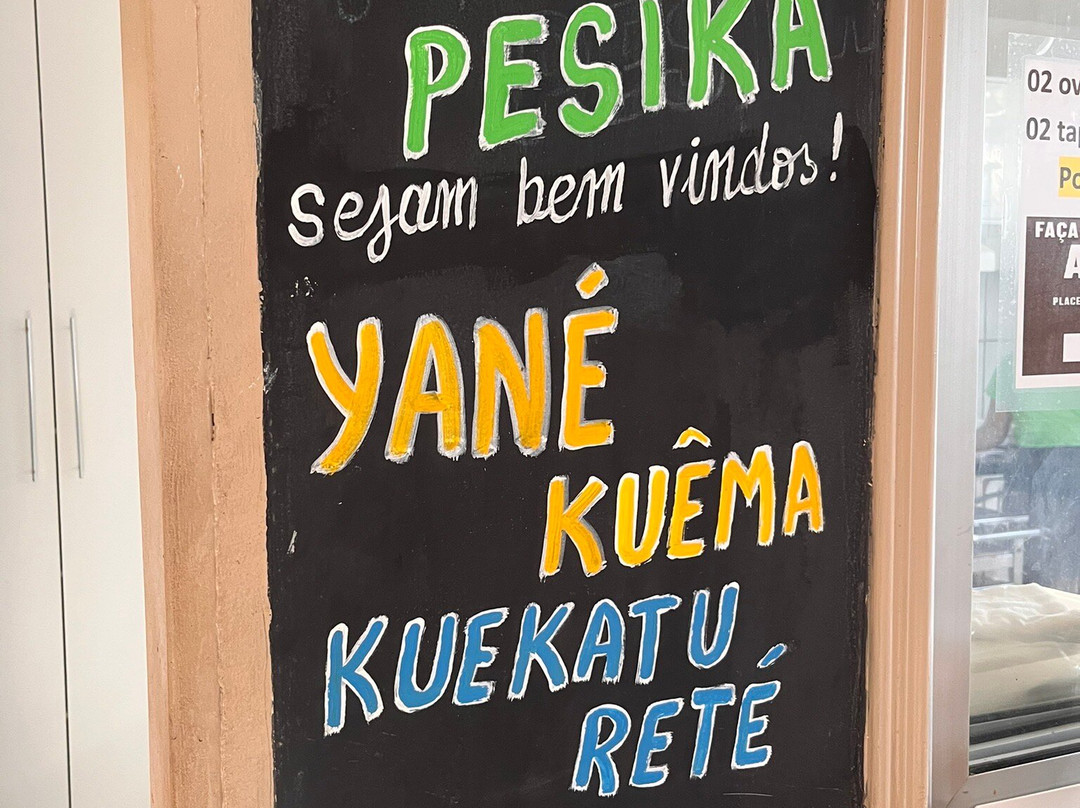 PESIKA
Sejam bem vindos!
YANÉ
KUÊMA
KUEKATU
RETÉ
02
02
FAÇA